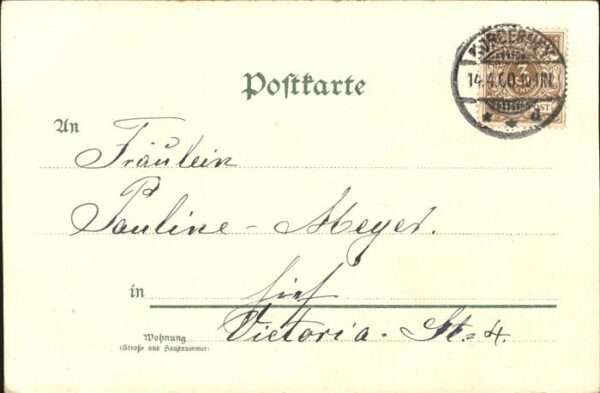 NORDERNEY
14.4.00.10-11N.
* * d
3
Postkarte
An
Fräulein
Pauline - Meyer.
in hief
Wohnung
(Straße und Hausnummer)
Victoria - St. 4.